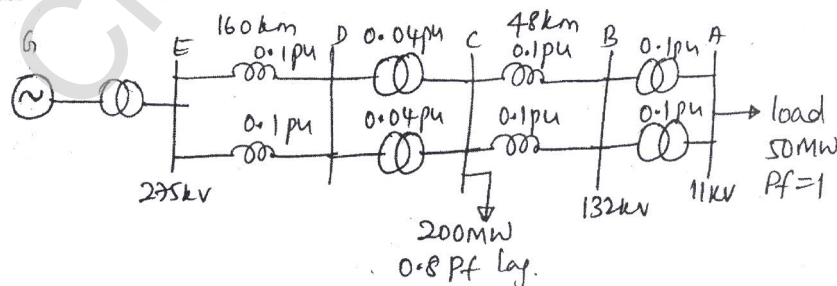 160km 48km
G E 0.1pu D 0.04pu C 0.1pu B 0.1pu A
0.1pu 0.04pu 0.1pu 0.1pu
load
50MW
Pf=1
275kv 132kv 11kv
200MW
0.8 Pf lag.